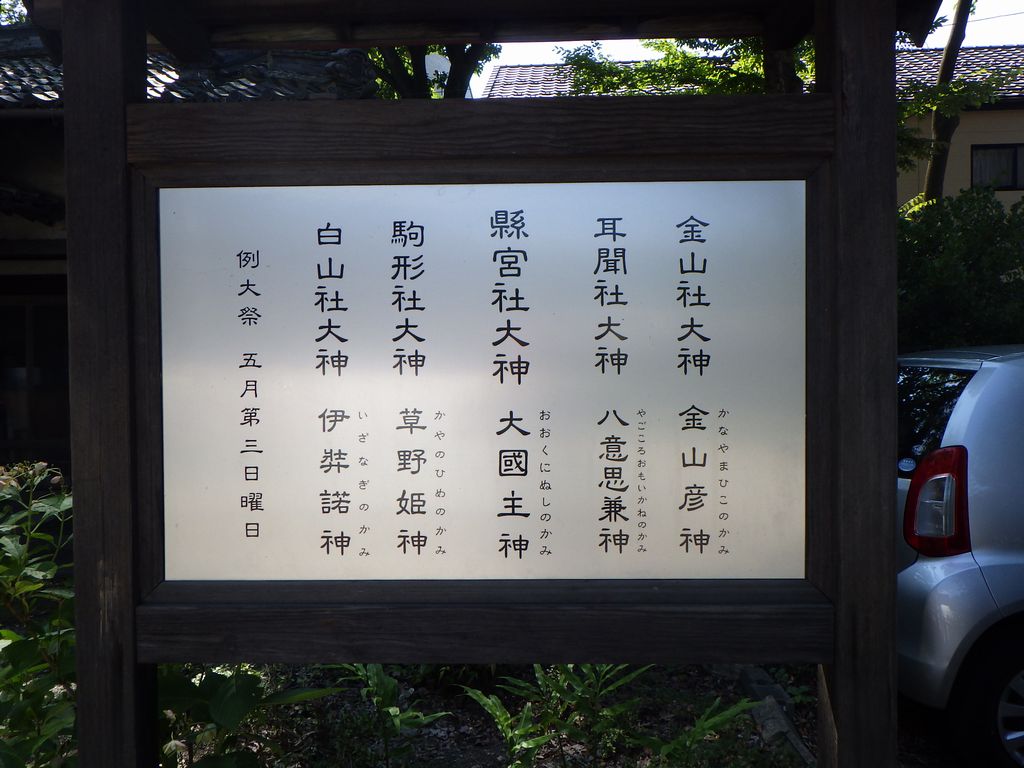 金山社大神 金山彦神
かなやまひこのかみ
耳聞社大神 八意思兼神
やごころおもいかねのかみ
縣宮社大神 大國主神
おおくにぬしのかみ
駒形社大神 草野姫神
かやのひめのかみ
白山社大神 伊弉諾神
いざなぎのかみ
例大祭 五月第三日曜日